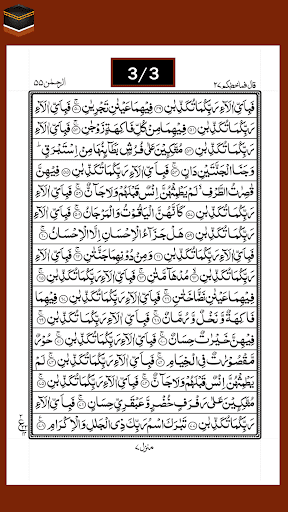 قال فما خطبكم ۲۷
الرحمٰن ۵۵
3/3
فَبِاَيِّ اٰلَآءِ رَبِّكُمَا تُكَذِّبٰنِ ۝۴۹ فِيْهِمَا عَيْنٰنِ تَجْرِيٰنِ ۝۵۰ فَبِاَيِّ اٰلَآءِ
رَبِّكُمَا تُكَذِّبٰنِ ۝۵۱ فِيْهِمَا مِنْ كُلِّ فَاكِهَةٍ زَوْجٰنِ ۝۵۲ فَبِاَيِّ اٰلَآءِ
رَبِّكُمَا تُكَذِّبٰنِ ۝۵۳ مُتَّكِـِٕيْنَ عَلٰى فُرُشٍۭ بَطَآىِٕنُهَا مِنْ اِسْتَبْرَقٍ
وَجَنَا الْجَنَّتَيْنِ دَانٍ ۝۵۴ فَبِاَيِّ اٰلَآءِ رَبِّكُمَا تُكَذِّبٰنِ ۝۵۵ فِيْهِنَّ
قٰصِرٰتُ الطَّرْفِ لَمْ يَطْمِثْهُنَّ اِنْسٌ قَبْلَهُمْ وَلَا جَآنٌّ ۝۵۶ فَبِاَيِّ اٰلَآءِ
رَبِّكُمَا تُكَذِّبٰنِ ۝۵۷ كَاَنَّهُنَّ الْيَاقُوْتُ وَالْمَرْجَانُ ۝۵۸ فَبِاَيِّ اٰلَآءِ
رَبِّكُمَا تُكَذِّبٰنِ ۝۵۹ هَلْ جَزَآءُ الْاِحْسَانِ اِلَّا الْاِحْسَانُ ۝۶۰
فَبِاَيِّ اٰلَآءِ رَبِّكُمَا تُكَذِّبٰنِ ۝۶۱ وَمِنْ دُوْنِهِمَا جَنَّتٰنِ ۝۶۲ فَبِاَيِّ اٰلَآءِ
رَبِّكُمَا تُكَذِّبٰنِ ۝۶۳ مُدْهَآمَّتٰنِ ۝۶۴ فَبِاَيِّ اٰلَآءِ رَبِّكُمَا تُكَذِّبٰنِ ۝۶۵
فِيْهِمَا عَيْنٰنِ نَضَّاخَتٰنِ ۝۶۶ فَبِاَيِّ اٰلَآءِ رَبِّكُمَا تُكَذِّبٰنِ ۝۶۷ فِيْهِمَا
فَاكِهَةٌ وَّنَخْلٌ وَّرُمَّانٌ ۝۶۸ فَبِاَيِّ اٰلَآءِ رَبِّكُمَا تُكَذِّبٰنِ ۝۶۹
فِيْهِنَّ خَيْرٰتٌ حِسَانٌ ۝۷۰ فَبِاَيِّ اٰلَآءِ رَبِّكُمَا تُكَذِّبٰنِ ۝۷۱ حُوْرٌ
مَّقْصُوْرٰتٌ فِي الْخِيَامِ ۝۷۲ فَبِاَيِّ اٰلَآءِ رَبِّكُمَا تُكَذِّبٰنِ ۝۷۳ لَمْ
يَطْمِثْهُنَّ اِنْسٌ قَبْلَهُمْ وَلَا جَآنٌّ ۝۷۴ فَبِاَيِّ اٰلَآءِ رَبِّكُمَا تُكَذِّبٰنِ ۝۷۵
مُتَّكِـِٕيْنَ عَلٰى رَفْرَفٍ خُضْرٍ وَّعَبْقَرِيٍّ حِسَانٍ ۝۷۶ فَبِاَيِّ اٰلَآءِ
رَبِّكُمَا تُكَذِّبٰنِ ۝۷۷ تَبٰرَكَ اسْمُ رَبِّكَ ذِي الْجَلٰلِ وَالْاِكْرَامِ ۝۷۸
منزل ۷